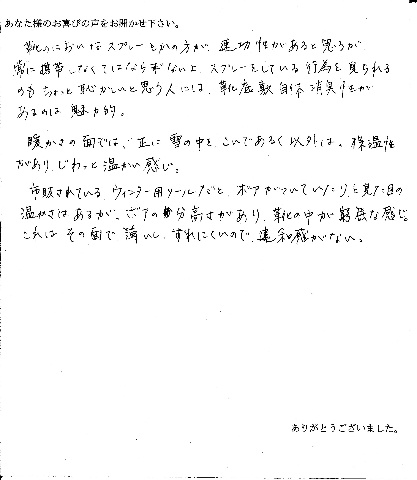 あなた様のお喜びの声をお聞かせ下さい。
靴のにおいはスプレーとかの方が、速功性があると思うが、
常に携帯しなくてはならないし、スプレーをしている行為を見られる
のもちょっと恥かしいと思う人には、靴底敷自体消臭性が
あるのは魅力的。
暖かさの面では、正に雪の中をこいであるく以外は、保温性
があり、じわっと温かい感じ。
市販されているウィンター用ソールだと、ボアがついていたりと見た目の
温かさはあるが、ボアの分高さがあり、靴の中が窮屈な感じ。
これはその面で薄いし、すれにくいので、違和感がない。
ありがとうございました。